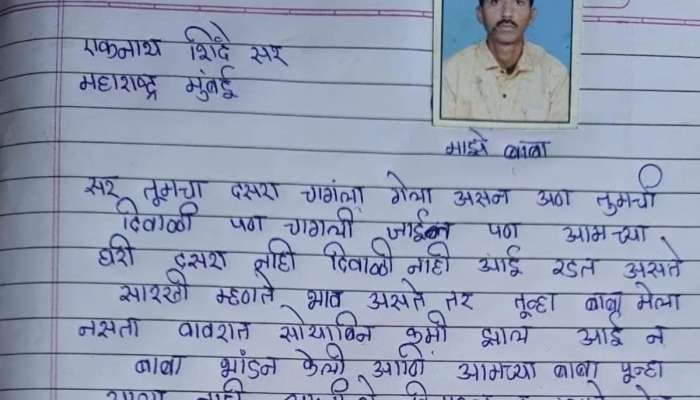 एकनाथ शिंदे सर
महाराष्ट्र मुंबई
माझे बाबा
सर तूमचा दसरा चागंला गेला असन अण तुमची
दिवाळी पण चागली जाईल पण आमच्या
घरी दसरा नाही दिवाळी नाही आई रडत असते
सारखी म्हणते भाव असते तर तूव्हा बाबा मेला
नसता वावरात सोयाबिन कमी झाल आई न
बाबा भांडन केली आणि आमच्या बाबा पून्हा